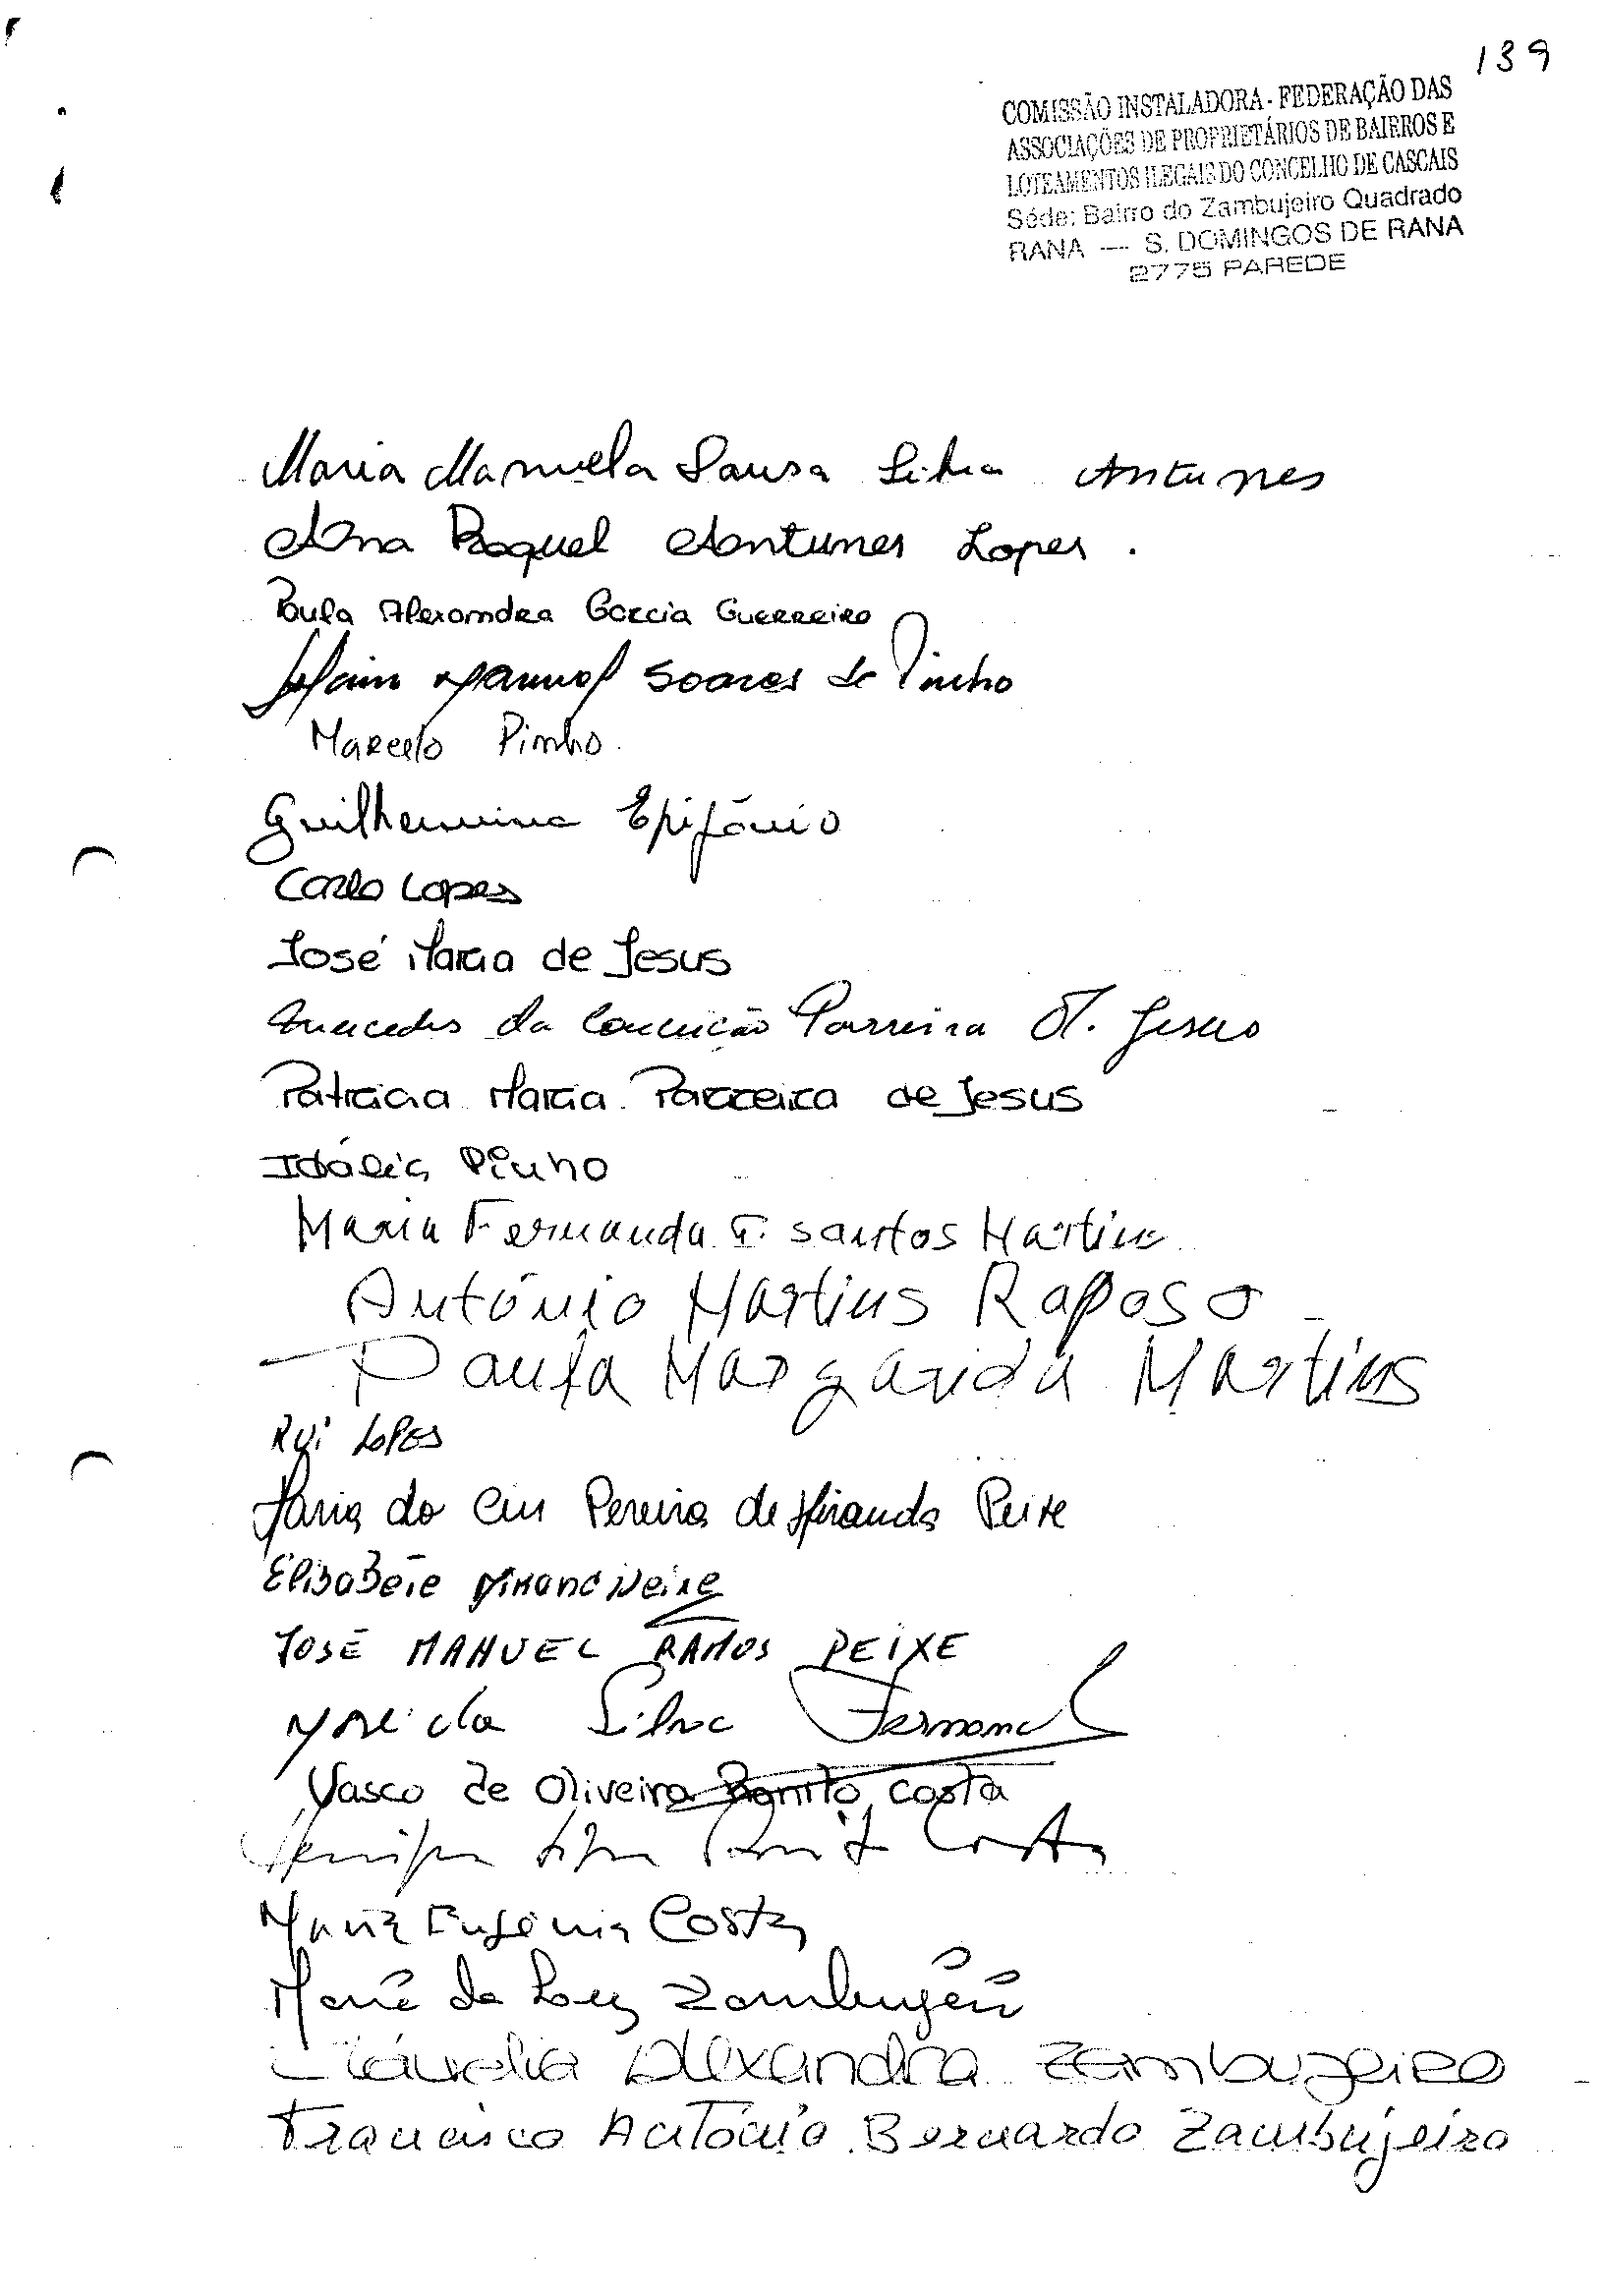 139
COMISSÃO INSTALADORA - FEDERAÇÃO DAS
ASSOCIAÇÕES DE PROPRIETÁRIOS DE BAIRROS E
LOTEAMENTOS ILEGAIS DO CONCELHO DE CASCAIS
Séde: Bairro do Zambujeiro Quadrado
RANA — S. DOMINGOS DE RANA
2775 PAREDE
Maria Manuela Sousa Silva Antunes
Ana Raquel Antunes Lopes.
Paula Alexandra Garcia Guerreiro
Manuel Soares de Pinho
Marcelo Pinho
Guilhermina Epifânio
Carlo Lopes
José Maria de Jesus
da Conceição Parreira M. Jesus
Patricia Maria Parreira de Jesus
Idália Pinho
Maria Fernanda G. Santos Martins
António Martins Raposo
Paula Margarida Martins
Rui Lopes
Maria do Céu Pereira de Miranda Peixe
Elisabete Miranda Peixe
JOSÉ MANUEL RAMOS PEIXE
Silva Fernand
Vasco de Oliveira Bonito Costa
Costa
Maria Eugénia Costa
Maria da Luz Zambujeiro
Cláudia Alexandra Zambujeiro
Francisco António Bernardo Zambujeiro